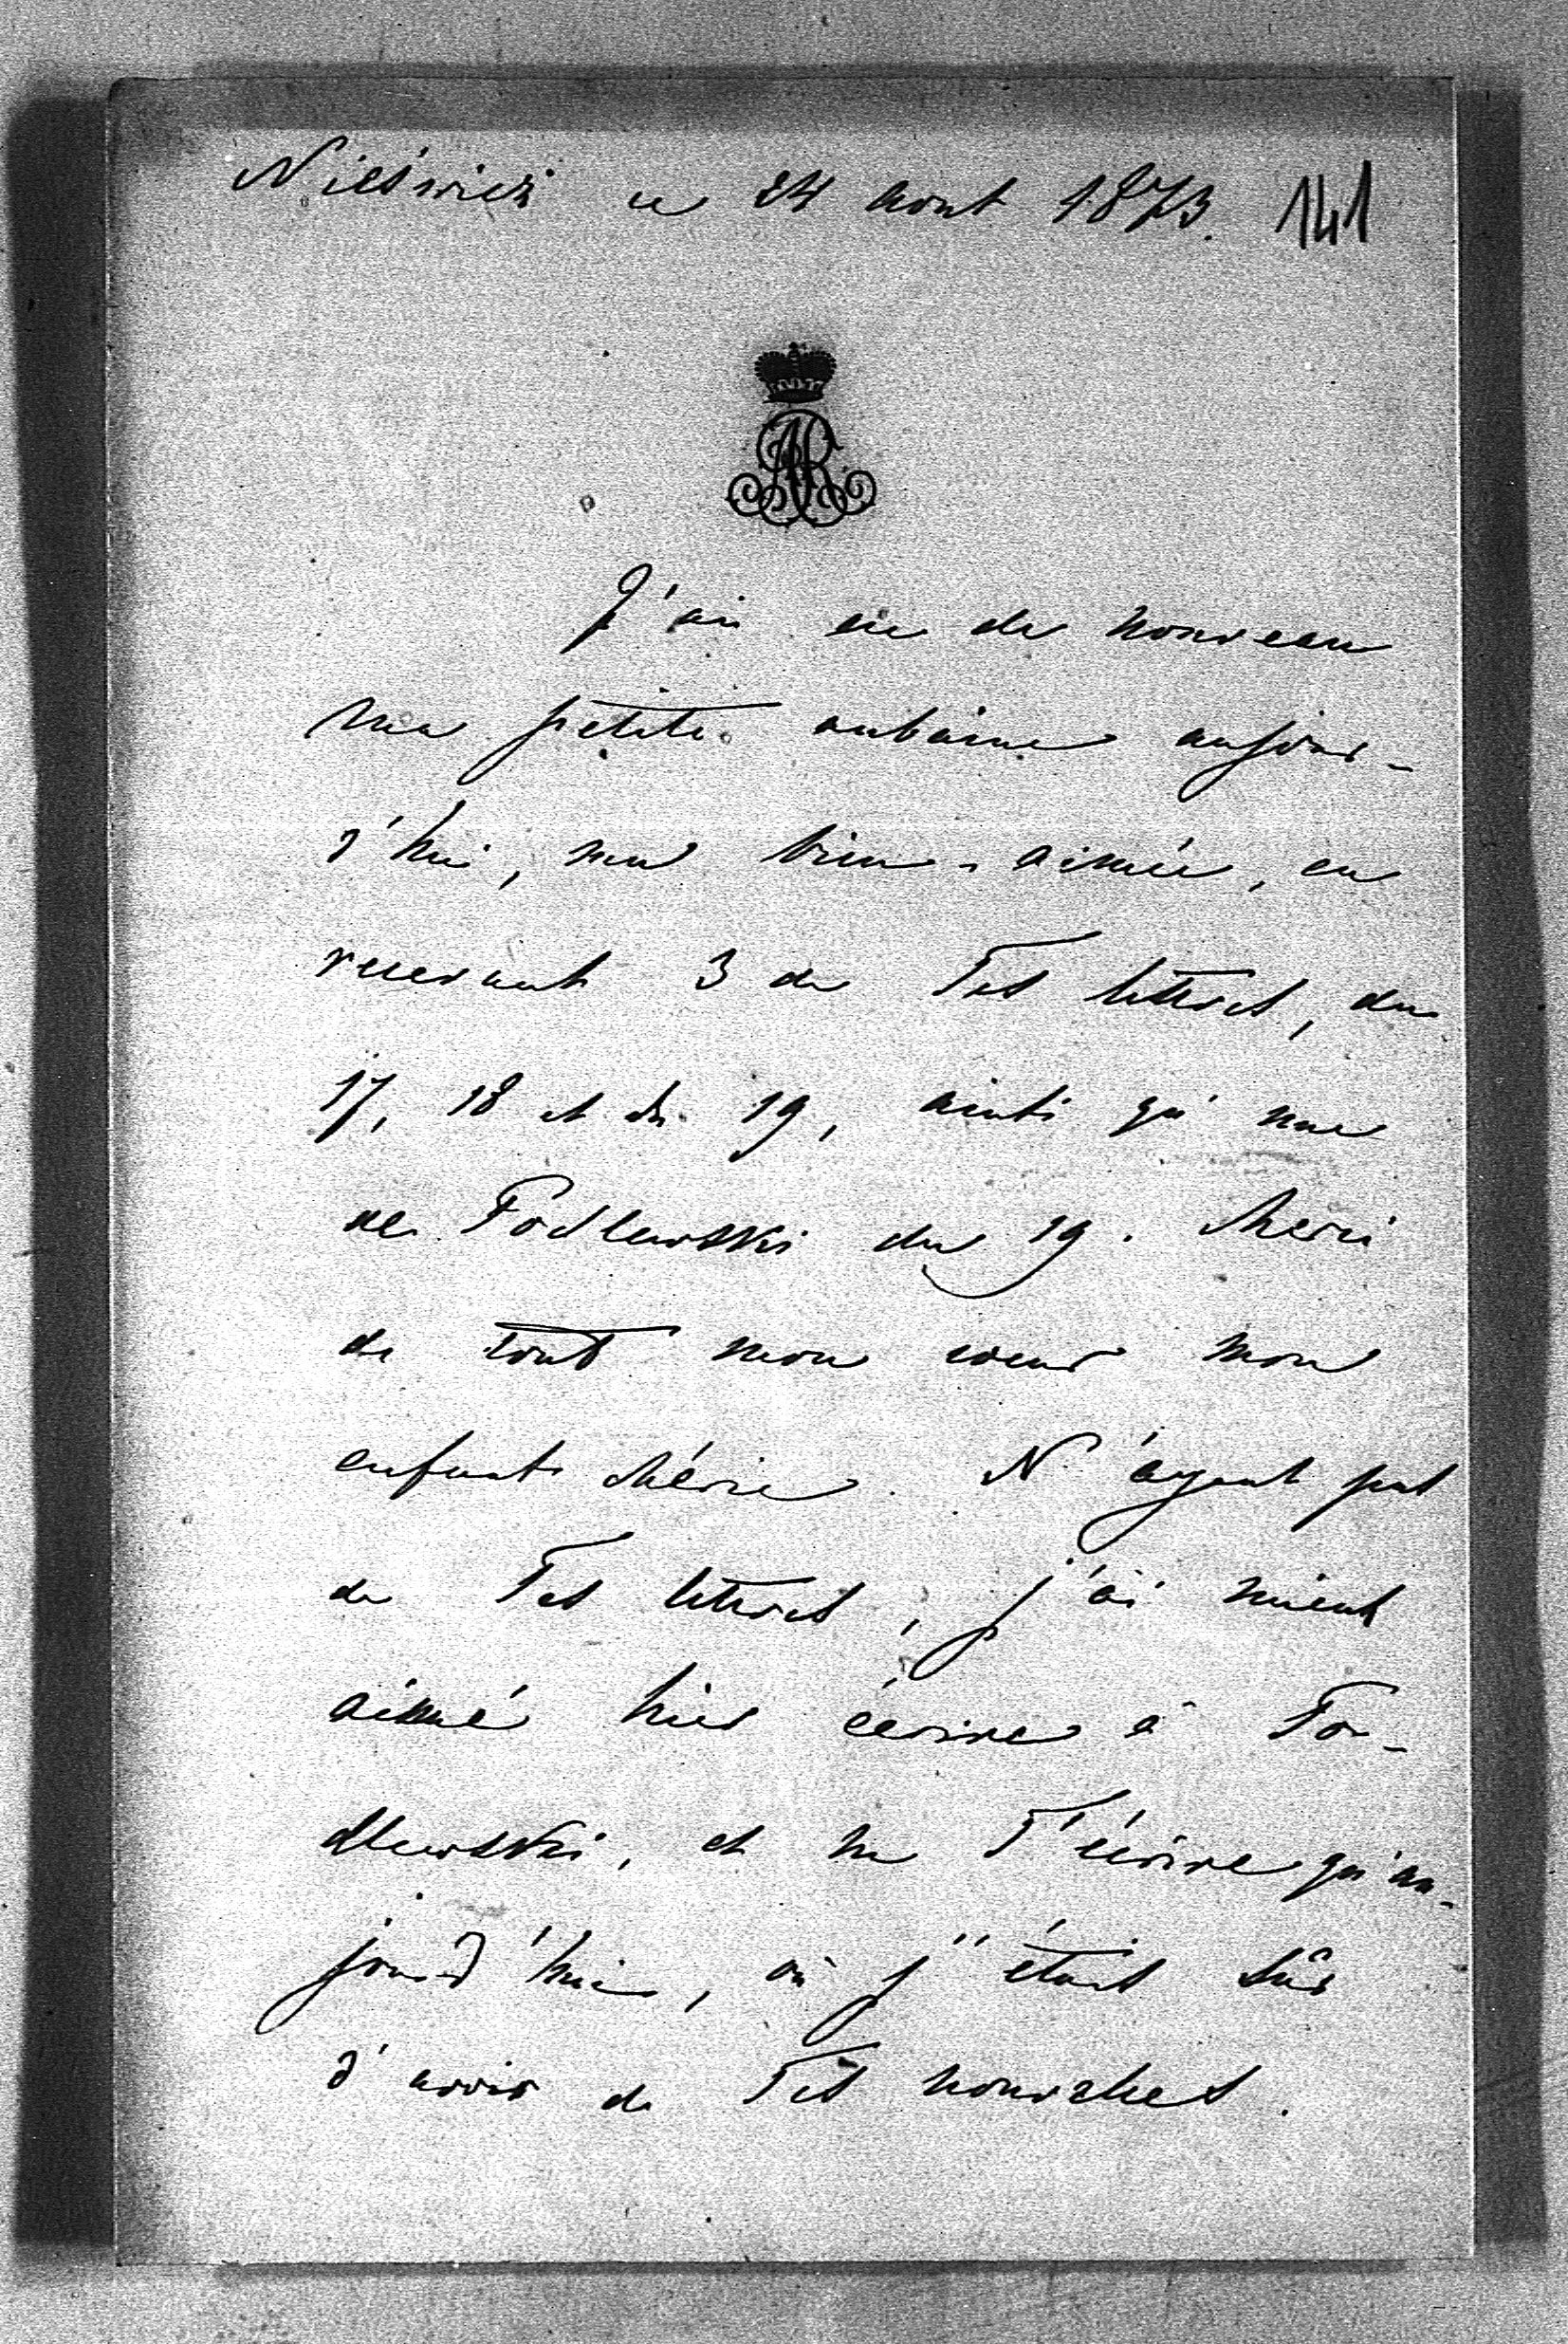 Nieśwież ce 24 aout 1873. 141
AR
J'ai eu de nouveau
ma petite aubaine aujour-
d'hui, ma bien-aimée, en
recevant 3 de Tes lettres, du
17, 18 et du 19, ainsi qu'une
de Podlewski du 19. Merci
de tout mon coeur mon
enfant chérie. N'ayant pas
de Tes lettres, j'ai mieux
aimé hier écrire à Po-
dlewski, et ne T'écrire qu'au-
jourd'hui, où j'étais sûr
d'avoir de Tes nouvelles.